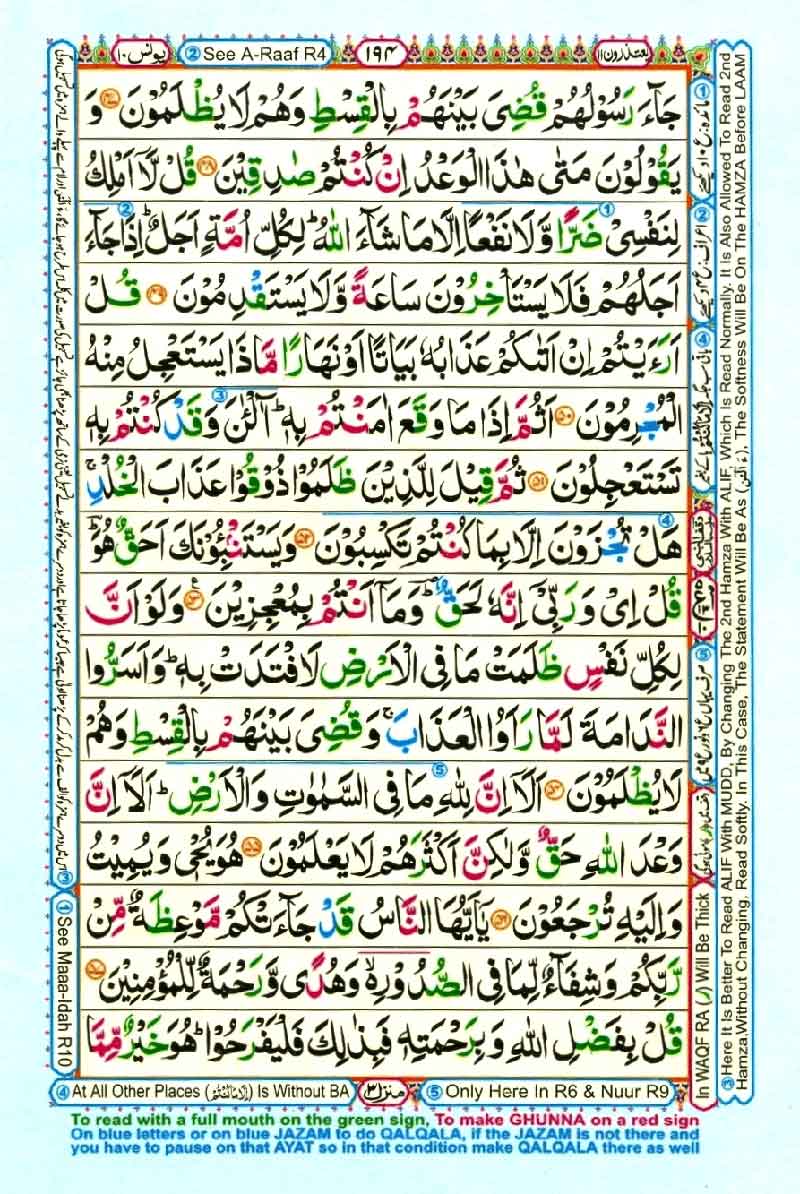 یعتذرون ۱۱
۱۹۴
② See A-Raaf R4
یونس ۱۰
جَآءَ رَسُوْلُهُمْ قُضِیَ بَیْنَهُمْ بِالْقِسْطِ وَهُمْ لَا یُظْلَمُوْنَ ۴۷ وَ
یَقُوْلُوْنَ مَتٰی هٰذَا الْوَعْدُ اِنْ كُنْتُمْ صٰدِقِیْنَ ۴۸ قُلْ لَّاۤ اَمْلِكُ
لِنَفْسِیْ ضَرًّا وَّلَا نَفْعًا اِلَّا مَا شَآءَ اللّٰهُ ؕ لِكُلِّ اُمَّةٍ اَجَلٌ ؕ اِذَا جَآءَ
اَجَلُهُمْ فَلَا یَسْتَاْخِرُوْنَ سَاعَةً وَّلَا یَسْتَقْدِمُوْنَ ۴۹ قُلْ
اَرَءَیْتُمْ اِنْ اَتٰىكُمْ عَذَابُهٗ بَیَاتًا اَوْ نَهَارًا مَّا ذَا یَسْتَعْجِلُ مِنْهُ
الْمُجْرِمُوْنَ ۵۰ اَثُمَّ اِذَا مَا وَقَعَ اٰمَنْتُمْ بِهٖ ؕ آٰلْـٰٔنَ وَقَدْ كُنْتُمْ بِهٖ
تَسْتَعْجِلُوْنَ ۵۱ ثُمَّ قِیْلَ لِلَّذِیْنَ ظَلَمُوْا ذُوْقُوْا عَذَابَ الْخُلْدِ ۚ
هَلْ تُجْزَوْنَ اِلَّا بِمَا كُنْتُمْ تَكْسِبُوْنَ ۵۲ وَیَسْتَنْۢبِـُٔوْنَكَ اَحَقٌّ هُوَ ؕ
قُلْ اِیْ وَرَبِّیْۤ اِنَّهٗ لَحَقٌّ ؕ وَمَاۤ اَنْتُمْ بِمُعْجِزِیْنَ ۵۳ وَلَوْ اَنَّ
لِكُلِّ نَفْسٍ ظَلَمَتْ مَا فِی الْاَرْضِ لَافْتَدَتْ بِهٖ ؕ وَاَسَرُّوا
النَّدَامَةَ لَمَّا رَاَوُا الْعَذَابَ ۚ وَقُضِیَ بَیْنَهُمْ بِالْقِسْطِ وَهُمْ
لَا یُظْلَمُوْنَ ۵۴ اَلَاۤ اِنَّ لِلّٰهِ مَا فِی السَّمٰوٰتِ وَالْاَرْضِ ؕ اَلَاۤ اِنَّ
وَعْدَ اللّٰهِ حَقٌّ وَّلٰكِنَّ اَكْثَرَهُمْ لَا یَعْلَمُوْنَ ۵۵ هُوَ یُحْیٖ وَیُمِیْتُ
وَاِلَیْهِ تُرْجَعُوْنَ ۵۶ یٰۤاَیُّهَا النَّاسُ قَدْ جَآءَتْكُمْ مَّوْعِظَةٌ مِّنْ
رَّبِّكُمْ وَشِفَآءٌ لِّمَا فِی الصُّدُوْرِ ۙ۬ وَهُدًی وَّرَحْمَةٌ لِّلْمُؤْمِنِیْنَ ۵۷
قُلْ بِفَضْلِ اللّٰهِ وَبِرَحْمَتِهٖ فَبِذٰلِكَ فَلْیَفْرَحُوْا ؕ هُوَ خَیْرٌ مِّمَّا
① See Maaa-Idah R10
In WAQF RA (ر) Will Be Thick
③ Here It Is Better To Read ALIF With MUDD, By Changing The 2nd Hamza With ALIF, Which Is Read Normally. It Is Also Allowed To Read 2nd
Hamza,Without Changing, Read Softly. In This Case, The Statement Will Be As The Softness Will Be On The HAMZA Before LAAM
④ At All Other Places Is Without BA
منزل ۳
⑤ Only Here In R6 & Nuur R9
To read with a full mouth on the green sign, To make GHUNNA on a red sign
On blue letters or on blue JAZAM to do QALQALA, if the JAZAM is not there and
you have to pause on that AYAT so in that condition make QALQALA there as well